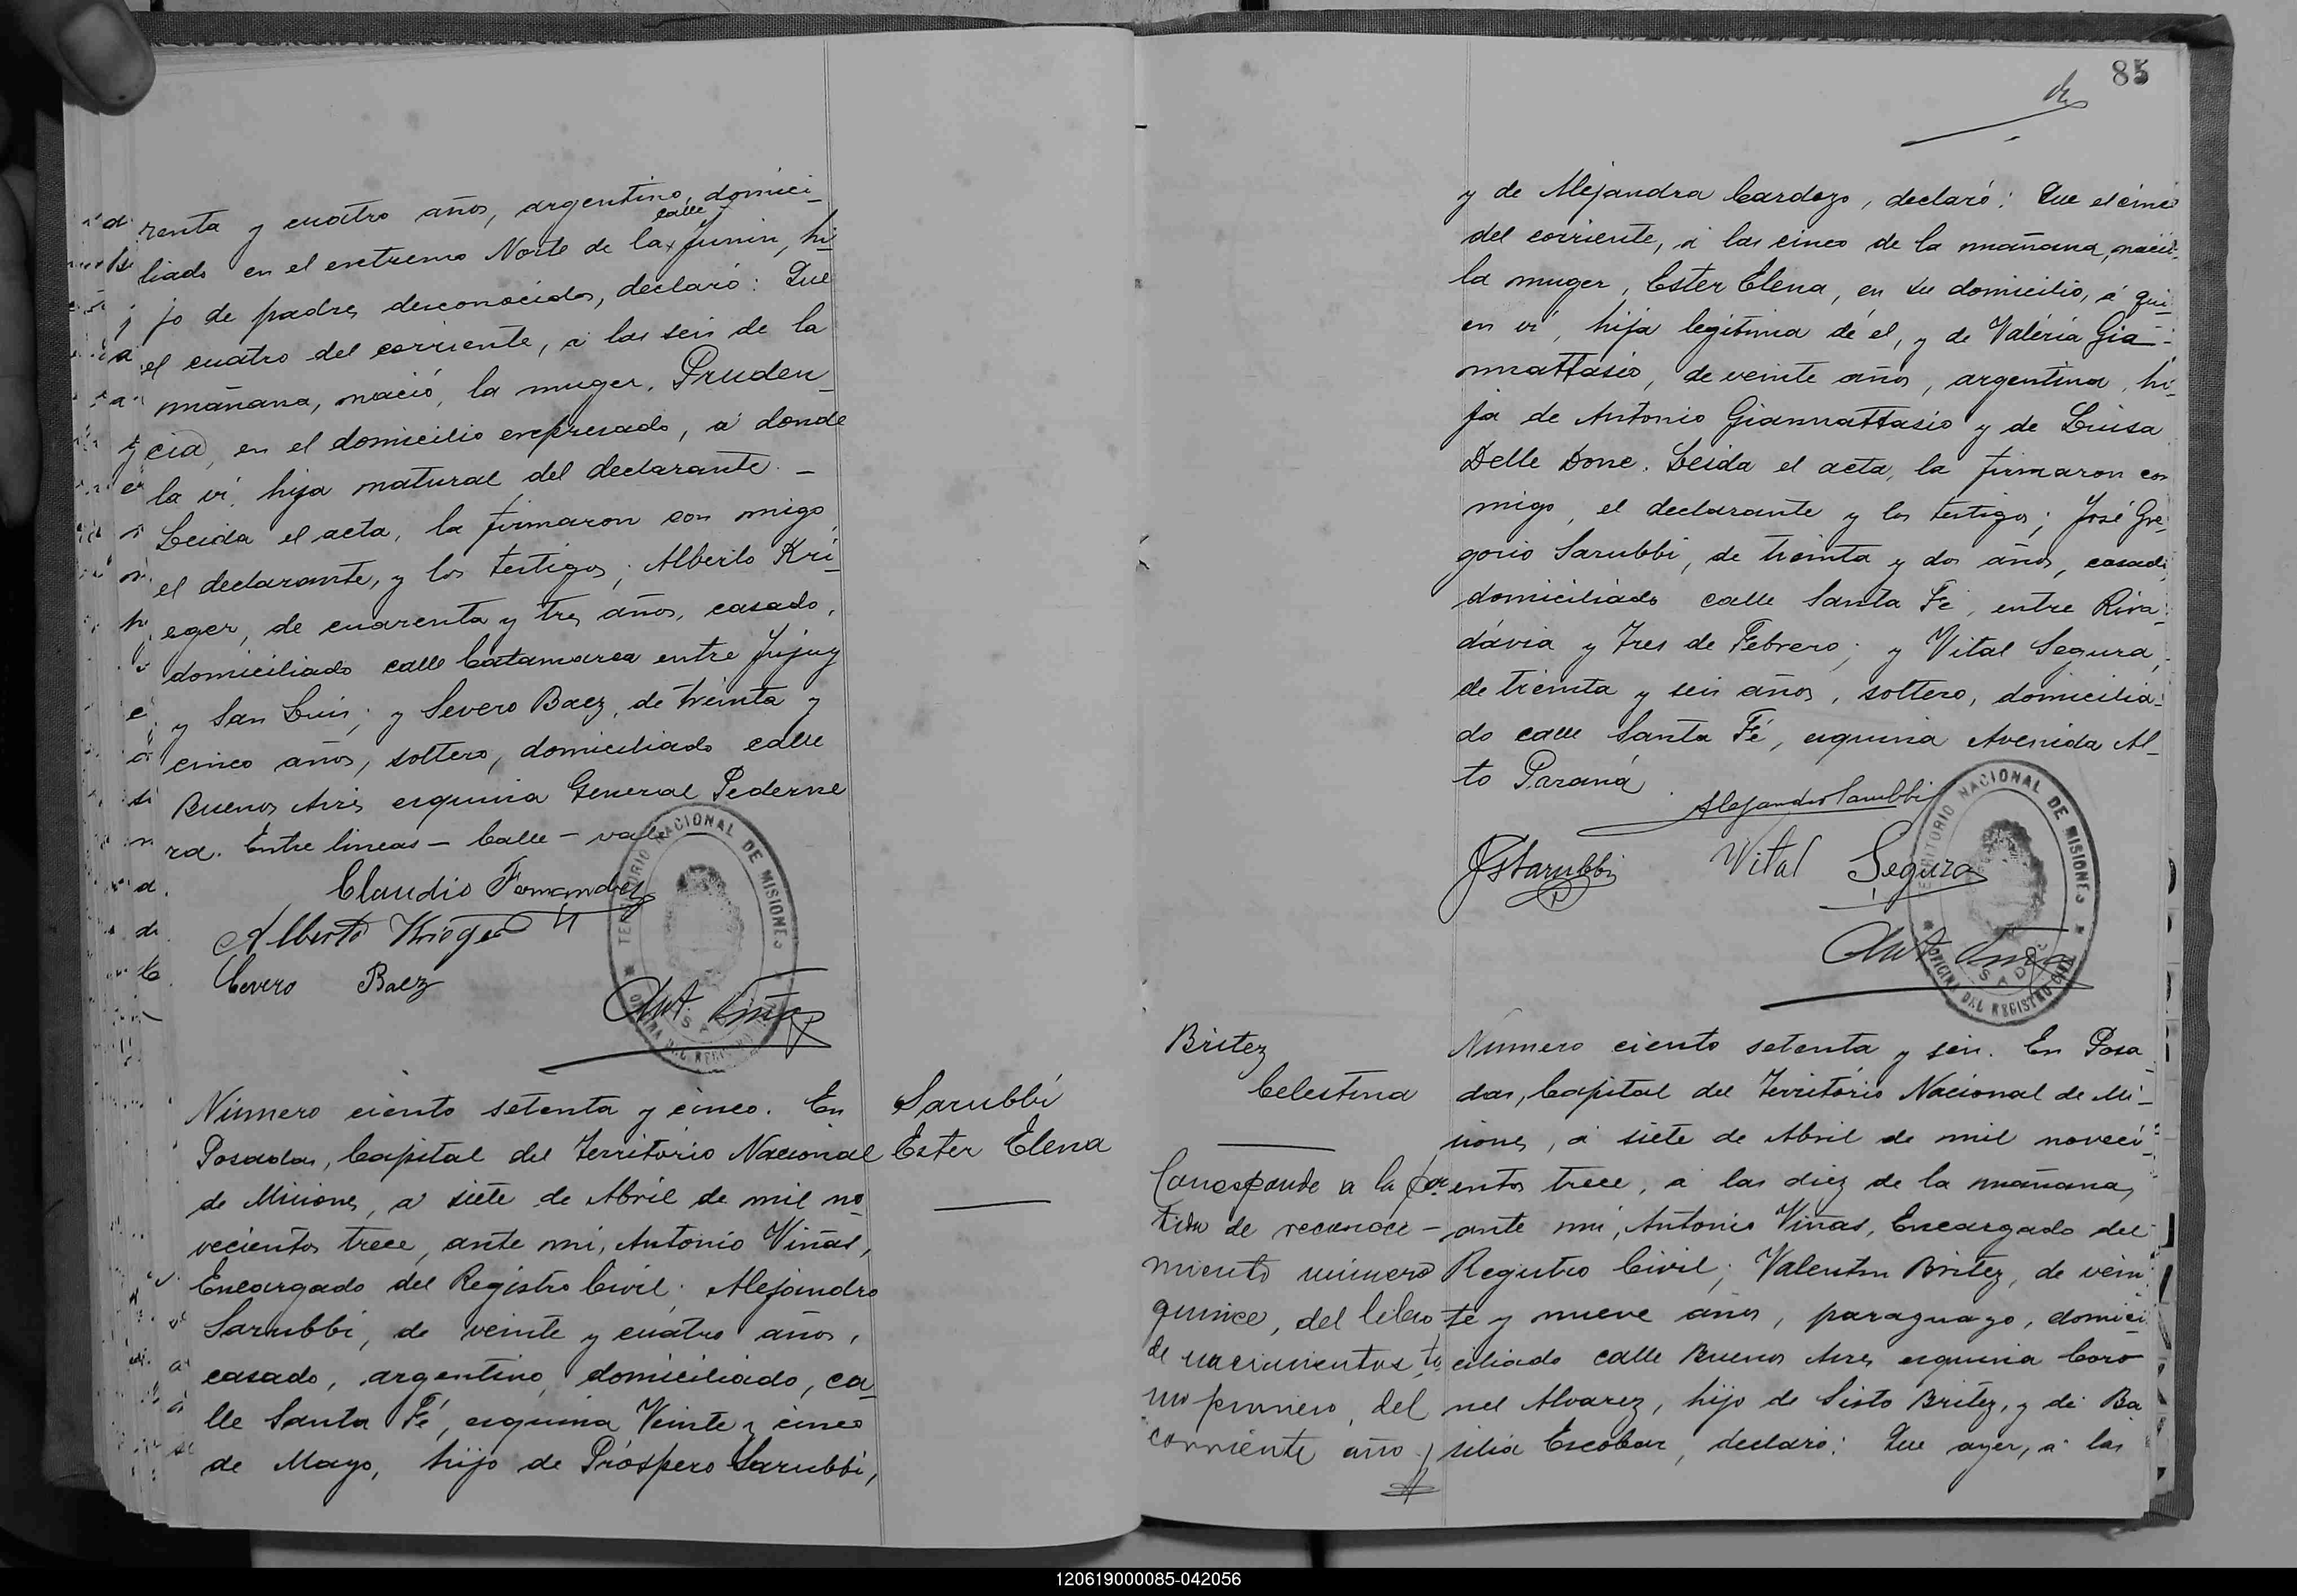 renta y cuatro años, argentino, domici-
calle
liado en el extremo Norte de la x Junin, hi-
jo de padres desconocidos, declaró: Que
el cuatro del corriente, á las seis de la
mañana, nació, la muger, Pruden-
cia, en el domicilio expresado, á donde
la ví, hija natural del declarante. -
Leida el acta, la firmaron con migo
el declarante, y los testigos; Alberto Kri-
eger, de cuarenta y tres años, casado,
domiciliado calle Catamarca entre Jujuy
y San Luis; y Severo Baez, de treinta y
cinco años, soltero, domiciliado calle
Buenos Aires esquina General Pederne
ra. Entre lineas - Calle - vale
Claudio Fernandez
Alberto Krieger
Cevero Baez
Ant. Viñas
TERRITORIO NACIONAL DE MISIONES
OFICINA DEL REGISTRO
Número ciento setenta y cinco. En
Posadas, Capital del Territorio Nacional
de Misiones, á siete de Abril de mil no-
vecientos trece, ante mi, Antonio Viñas,
Encargado del Registro Civil; Alejandro
Sarubbi, de veinte y cuatro años,
casado, argentino, domiciliado, ca-
lle Santa Fé, esquina Veinte y cinco
de Mayo, hijo de Próspero Sarubbi,
Sarubbi
Ester Elena
85
y de Alejandra Cardozo, declaró: Que el cinco
del corriente, á las cinco de la mañana, nació-
la muger, Ester Elena, en su domicilio, á qui-
en ví, hija legítima de él, y de Valéria Gia-
nnattasio, de veinte años, argentina, hi-
ja de Antonio Giannattasio y de Luisa
Delle Done. Leida el acta, la firmaron con
migo, el declarante y los testigos; José Gre-
gorio Sarubbi, de treinta y dos años, casado,
domiciliado calle Santa Fé, entre Riva-
davia y Tres de Febrero; y Vital Segura,
de treinta y seis años, soltero, domicilia-
do calle Santa Fé, esquina Avenida Al-
to Paraná.
Alejandro Sarubbi
JGSarubbi
Vital Segura
Ant. Viñas
TERRITORIO NACIONAL DE MISIONES
OFICINA DEL REGISTRO CIVIL
Britez
Celestina
Corresponde a la par
tida de reconoci-
miento número
quince, del libro
de nacimientos, to
mo primero, del
corriente año
Número ciento setenta y seis. En Posa-
das, Capital del Territorio Nacional de Mi-
siones, á siete de Abril de mil noveci-
entos trece, á las diez de la mañana,
ante mi, Antonio Viñas, Encargado del
Registro Civil; Valentin Britez, de vein-
te y nueve años, paraguayo, domici-
ciliado calle Buenos Aires esquina Coro-
nel Alvarez, hijo de Sisto Britez, y de Ba-
silia Escobar, declaró: Que ayer, á las
120619000085-042056